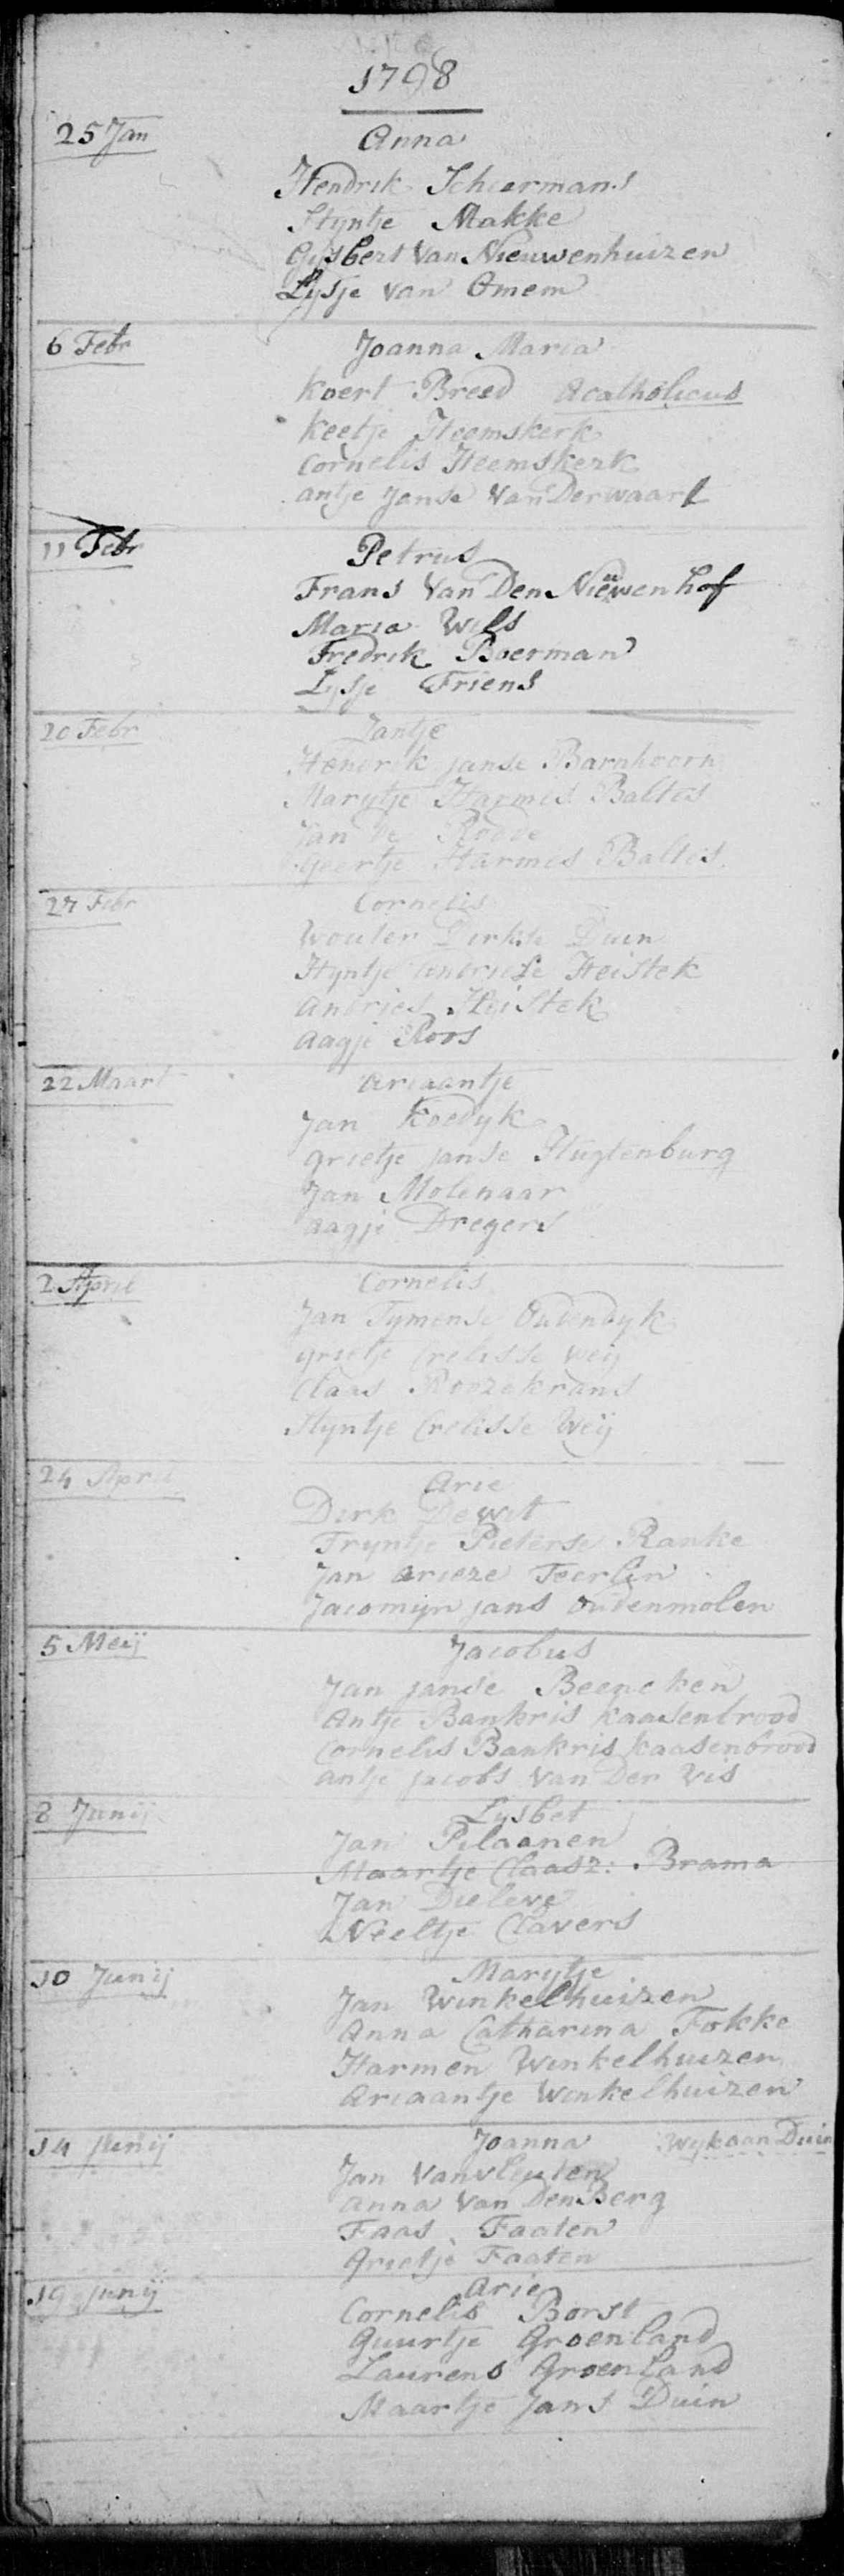 1798
25 Jan
Anna
Hendrik Scheermans
Styntje Makke
Gysbert Van Nieuwenhuizen
Lysje Van Omem
6 Febr
Joanna Maria
Koert Breed Acatholicus
Keetje Heemskerk
Cornelis Heemskerk
antje Janse Van Der waart
11 Febr
Petrus
Frans Van Den Niëwenhof
Maria Wils
Fredrik Boerman
Lysje Friens
20 Febr
Jantje
Hendrik janse Barnhoorn
Marytje Harmes Baltes
Jan De Roode
Geertje Harmes Baltes
27 Febr
Cornelis
Wouter Dirkse Duin
Styntje andriese Heistek
Andries Heistek
Aagje Roos
22 Maart
Ariaantje
Jan Koedyk
Grietje janse Hugtenburg
Jan Molenaar
Aagje Dregers
2 April
Cornelis
Jan Tymense Oudendyk
Grietje Crelisse Weij
Claas Roozekrans
Styntje Crelisse Weij
24 April
Arie
Dirk De Wit
Tryntje Pieterse Ranke
Jan Arieze Teerlin
Jacomijn jans Oudenmolen
5 Meij
Jacobus
Jan janse Beeneken
Antje Bankris Kaasenbrood
Cornelis Bankris Kaasenbrood
antje jacobs Van Der Vis
8 Junij
Lysbet
Jan Pilaanen
Maartje Claasz: Brama
Jan Dieleve
Neeltje Clavers
10 Junij
Marytje
Jan Winkelhuizen
Anna Catharina Fokke
Harmen Winkelhuizen
Ariaantje Winkelhuizen
14 Junij
Joanna Wyk aan Duin
Jan Van vleuten
Anna Van Den Berg
Faas Faaten
Grietje Faaten
19 junij
Arie
Cornelis Borst
Guurtje Groenland
Laurens Groenland
Maartje Jans Duin